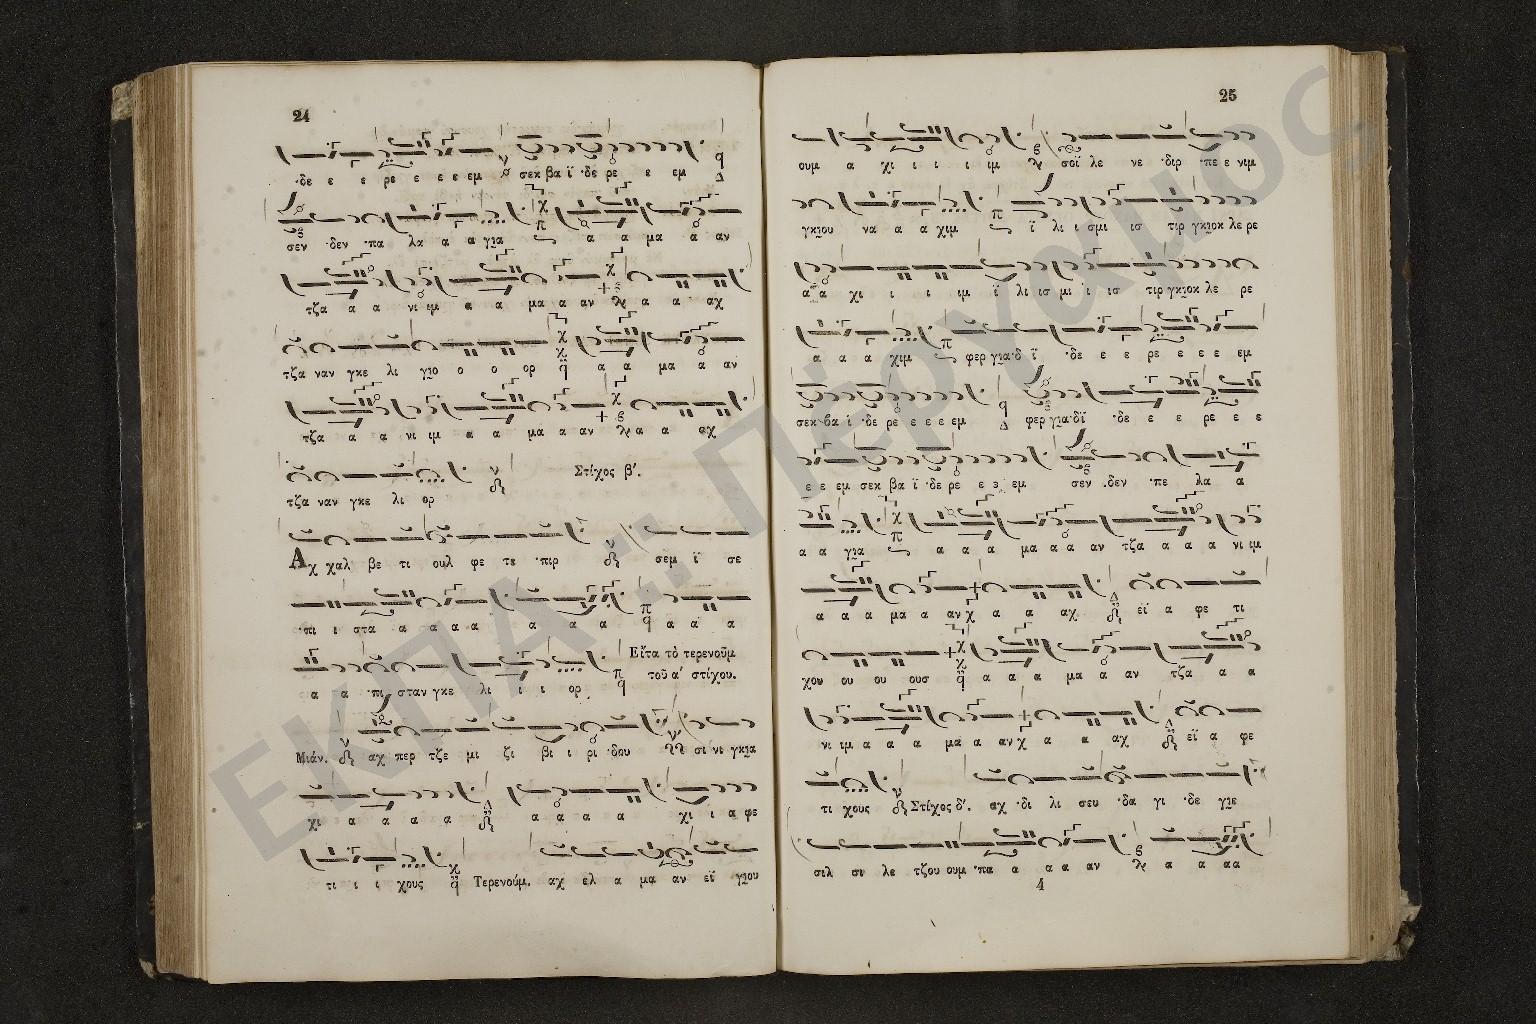 24
·δε ε ε ρε ε ε ε εμ σεκ βα ϊ ·δε ρε ε εμ
σεν ·δεν ·πα λα α α για α α μα α αν
τζα α α νι ιμ α α μα α αν α α αχ
τζα ναν γκε λι γιο ο ο ορ α α μα α αν
τζα α α νι ιμ α α μα α αν α α αχ
Στίχος β'.
τζα ναν γκε λι ορ
Αχ χαλ βε τι ουλ φε τε ·πιρ σεμ ϊ σε
·πι ι στα α α α α α α α α α α
Εἶτα τὸ τερενοῦμ
τοῦ α' στίχου.
α α ·πι σταν γκε λι ι ι ορ
Μιάν. αχ περ τζε μι ζι βι ι ρι ·δου σι νι γκια
χι α α α α α α α α χι ι α φε
τι ι ι χους Τερενούμ. αχ ελ α μα αν εϊ γιου
25
ουμ α χι ι ι ι ιμ σοϊ λε νε ·διρ ·πε ε νιμ
γκιου να α α χιμ ϊ λι ι σμι ισ τιρ γκιοκ λε ρε
α α χι ι ι ιμ ϊ λι ισ μι ι ισ τιρ γκιοκ λε ρε
α α α χιμ φερ για·δ ϊ ·δε ε ε ρε ε ε ε εμ
σεκ βα ϊ ·δε ρε ε ε ε εμ φερ για·δϊ ·δε ε ε ρε ε ε
ε ε εμ σεκ βα ϊ ·δε ρε ε ε εμ σεν ·δεν ·πε λα α
α α για α α α μα α α αν τζα α α α νι ιμ
α α α μα α αν α α αχ εϊ α φε τι
χου ου ου ουσ α α α μα α αν τζα α α
νι ιμ α α α μα α αν α α αχ εϊ α φε
τι χους Στίχος δ'. αχ ·δι λι σευ ·δα γι ·δε γιε
σιλ σι λε τζου ουμ ·πα α α α αν α α αα
4
ΕΚΠΑ :: Πέργαμος